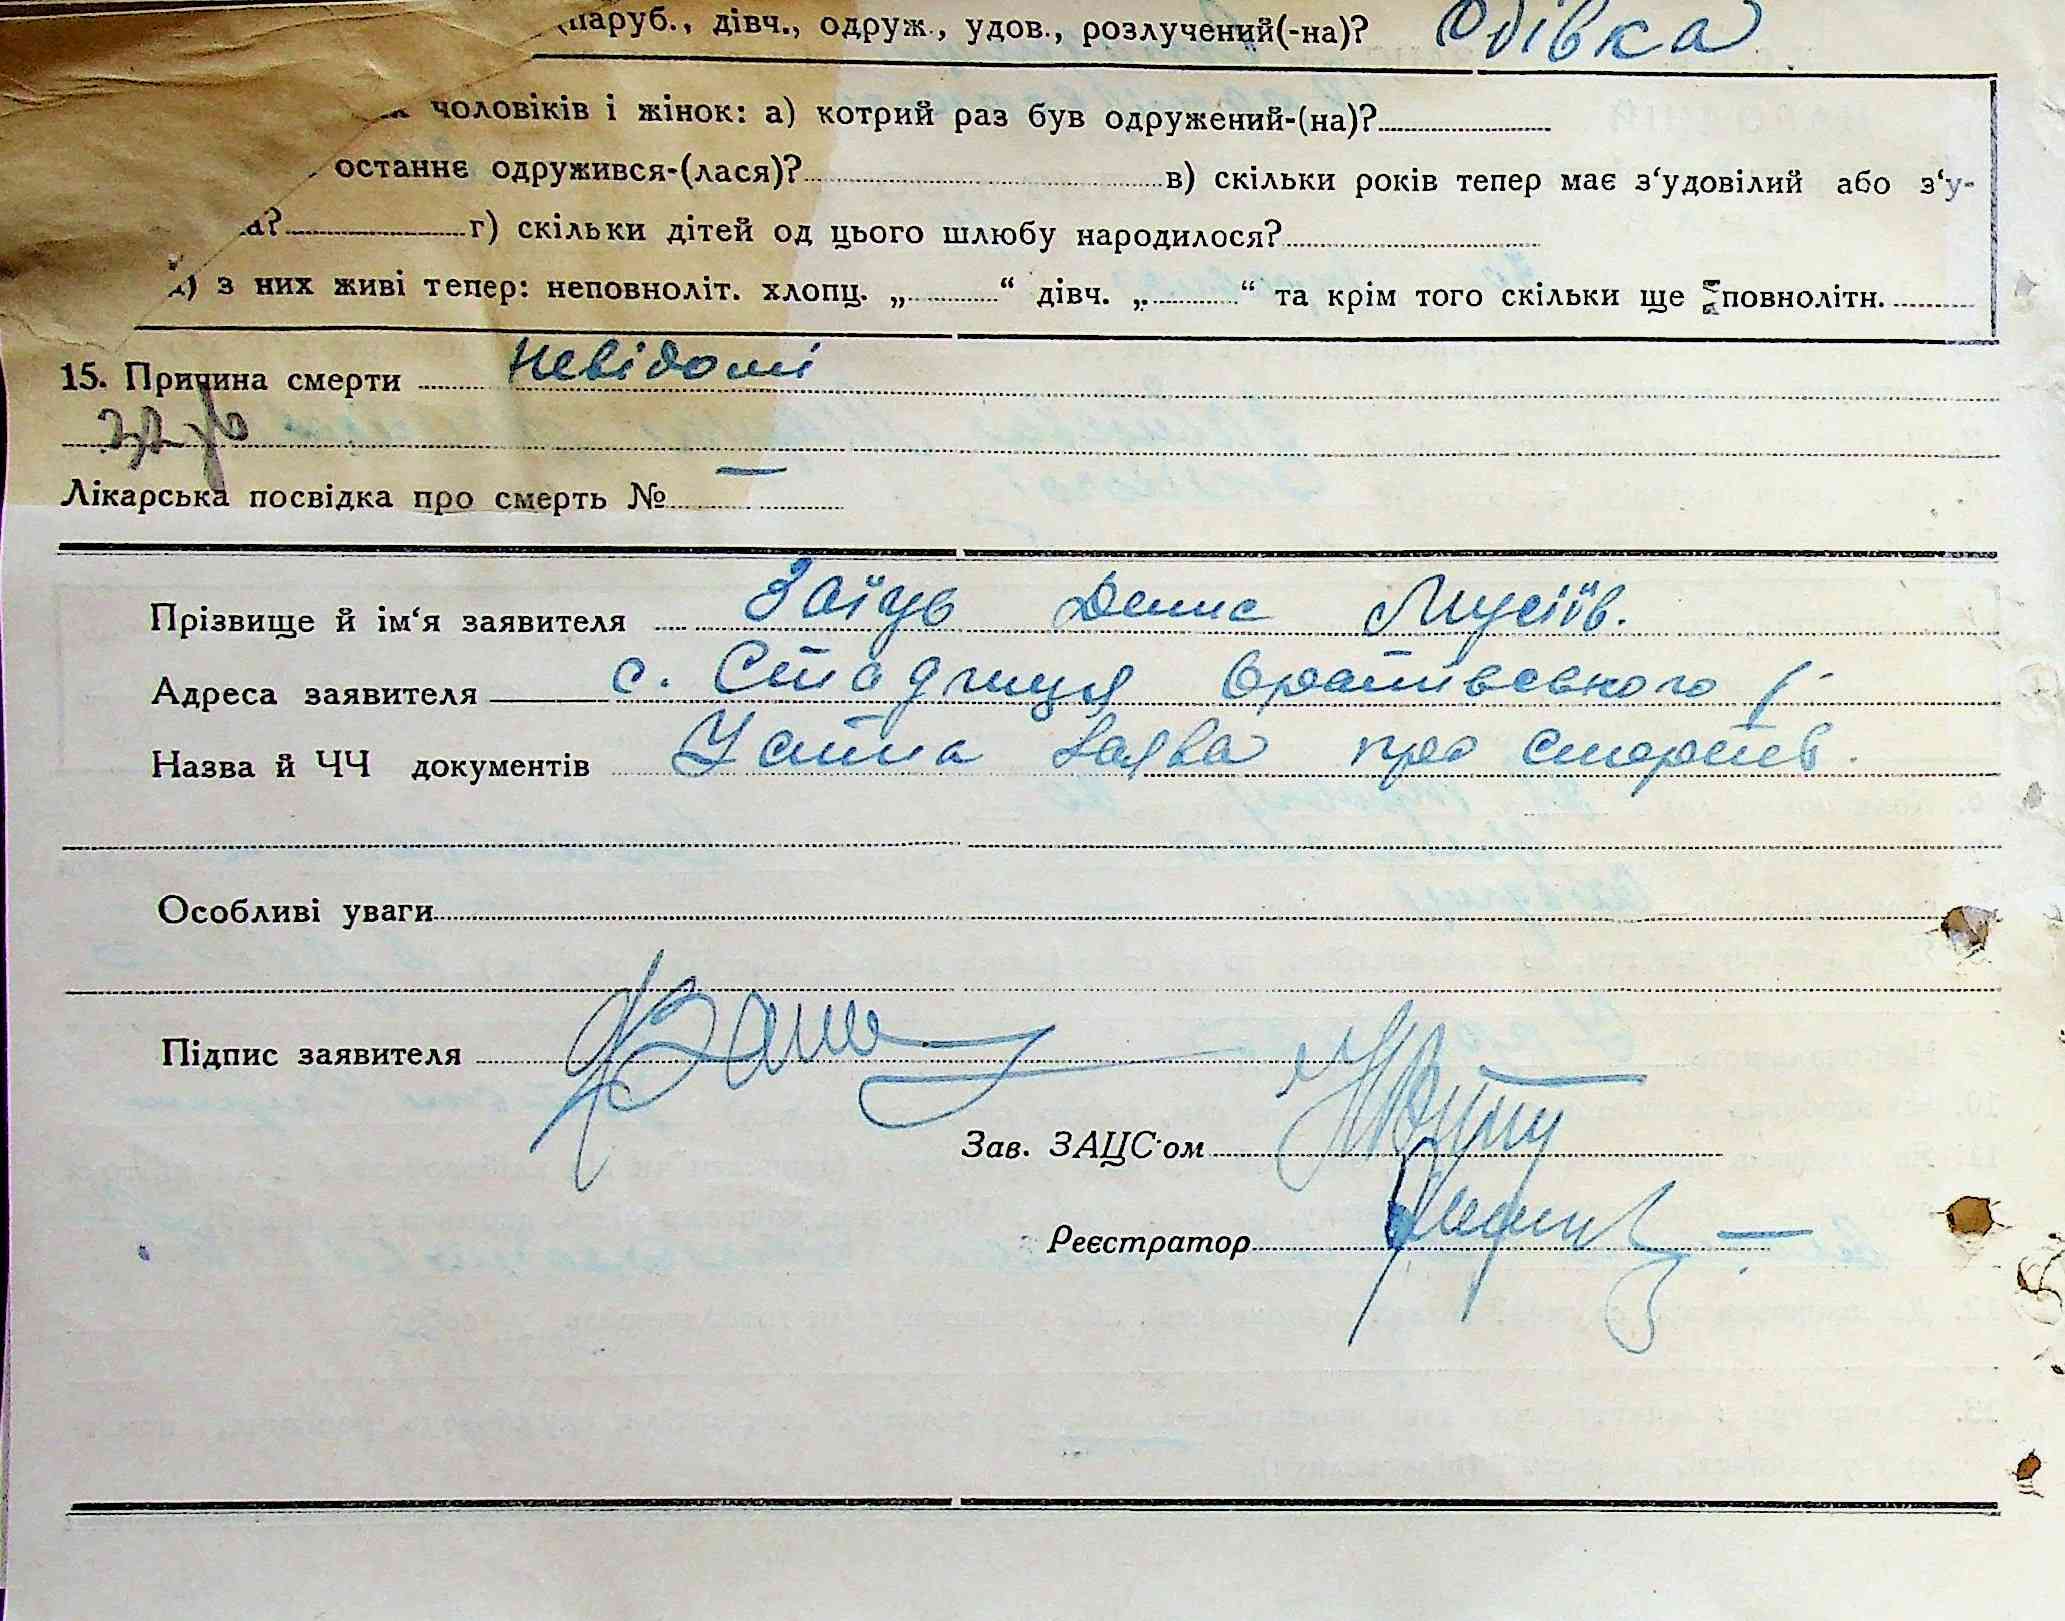 (паруб., дівч., одруж., удов., розлучений(-на)? Вдівка
чоловіків і жінок: а) котрий раз був одружений-(на)?
останнє одружився-(лася)? в) скільки років тепер має з‘удовілий або з‘у-
а? г) скільки дітей од цього шлюбу народилося?
д) з них живі тепер: неповноліт. хлопц. „ “ дівч. „ “ та крім того скільки ще повнолітн.
15. Причина смерти Невідомі
Лікарська посвідка про смерть № —
Прізвище й ім‘я заявителя Заїць Денис Мусіїв.
Адреса заявителя с. Стадниця
Назва й ЧЧ документів Устна заява про смерть.
Особливі уваги
Підпис заявителя
Зав. ЗАЦС‘ом
Реєстратор